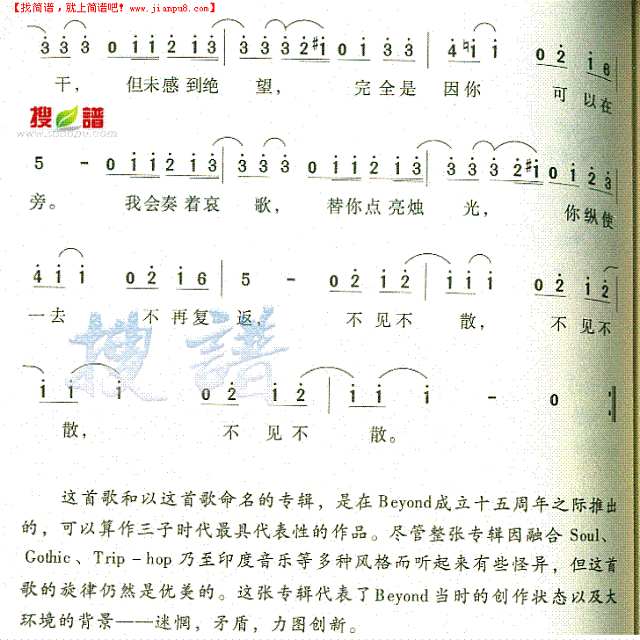 【找简谱，就上简谱吧！www.jianpu8.com】
3 3 3 0 1 1 2 1 3 3 3 3 3 2 #1 0 1 3 3 4 1 1 0 2 1 6
干， 但未感到绝 望， 完全是 因你 可以在
搜谱
www.sooopu.com
5 - 0 1 1 2 1 3 3 3 3 0 1 1 2 1 3 3 3 3 2 #1 0 1 2 3
旁。 我会奏着哀 歌， 替你点亮烛 光， 你纵使
4 1 1 0 2 1 6 5 - 0 2 1 2 1 1 1 0 2 1 2
一去 不再复 返， 不见不 散， 不见不
搜谱
1 1 1 0 2 1 2 1 1 1 - 0
散， 不见不 散。
这首歌和以这首歌命名的专辑，是在Beyond成立十五周年之际推出
的，可以算作三子时代最具代表性的作品。尽管整张专辑因融合 Soul、
Gothic、Trip-hop 乃至印度音乐等多种风格而听起来有些怪异，但这首
歌的旋律仍然是优美的。这张专辑代表了Beyond当时的创作状态以及大
环境的背景——迷惘，矛盾，力图创新。